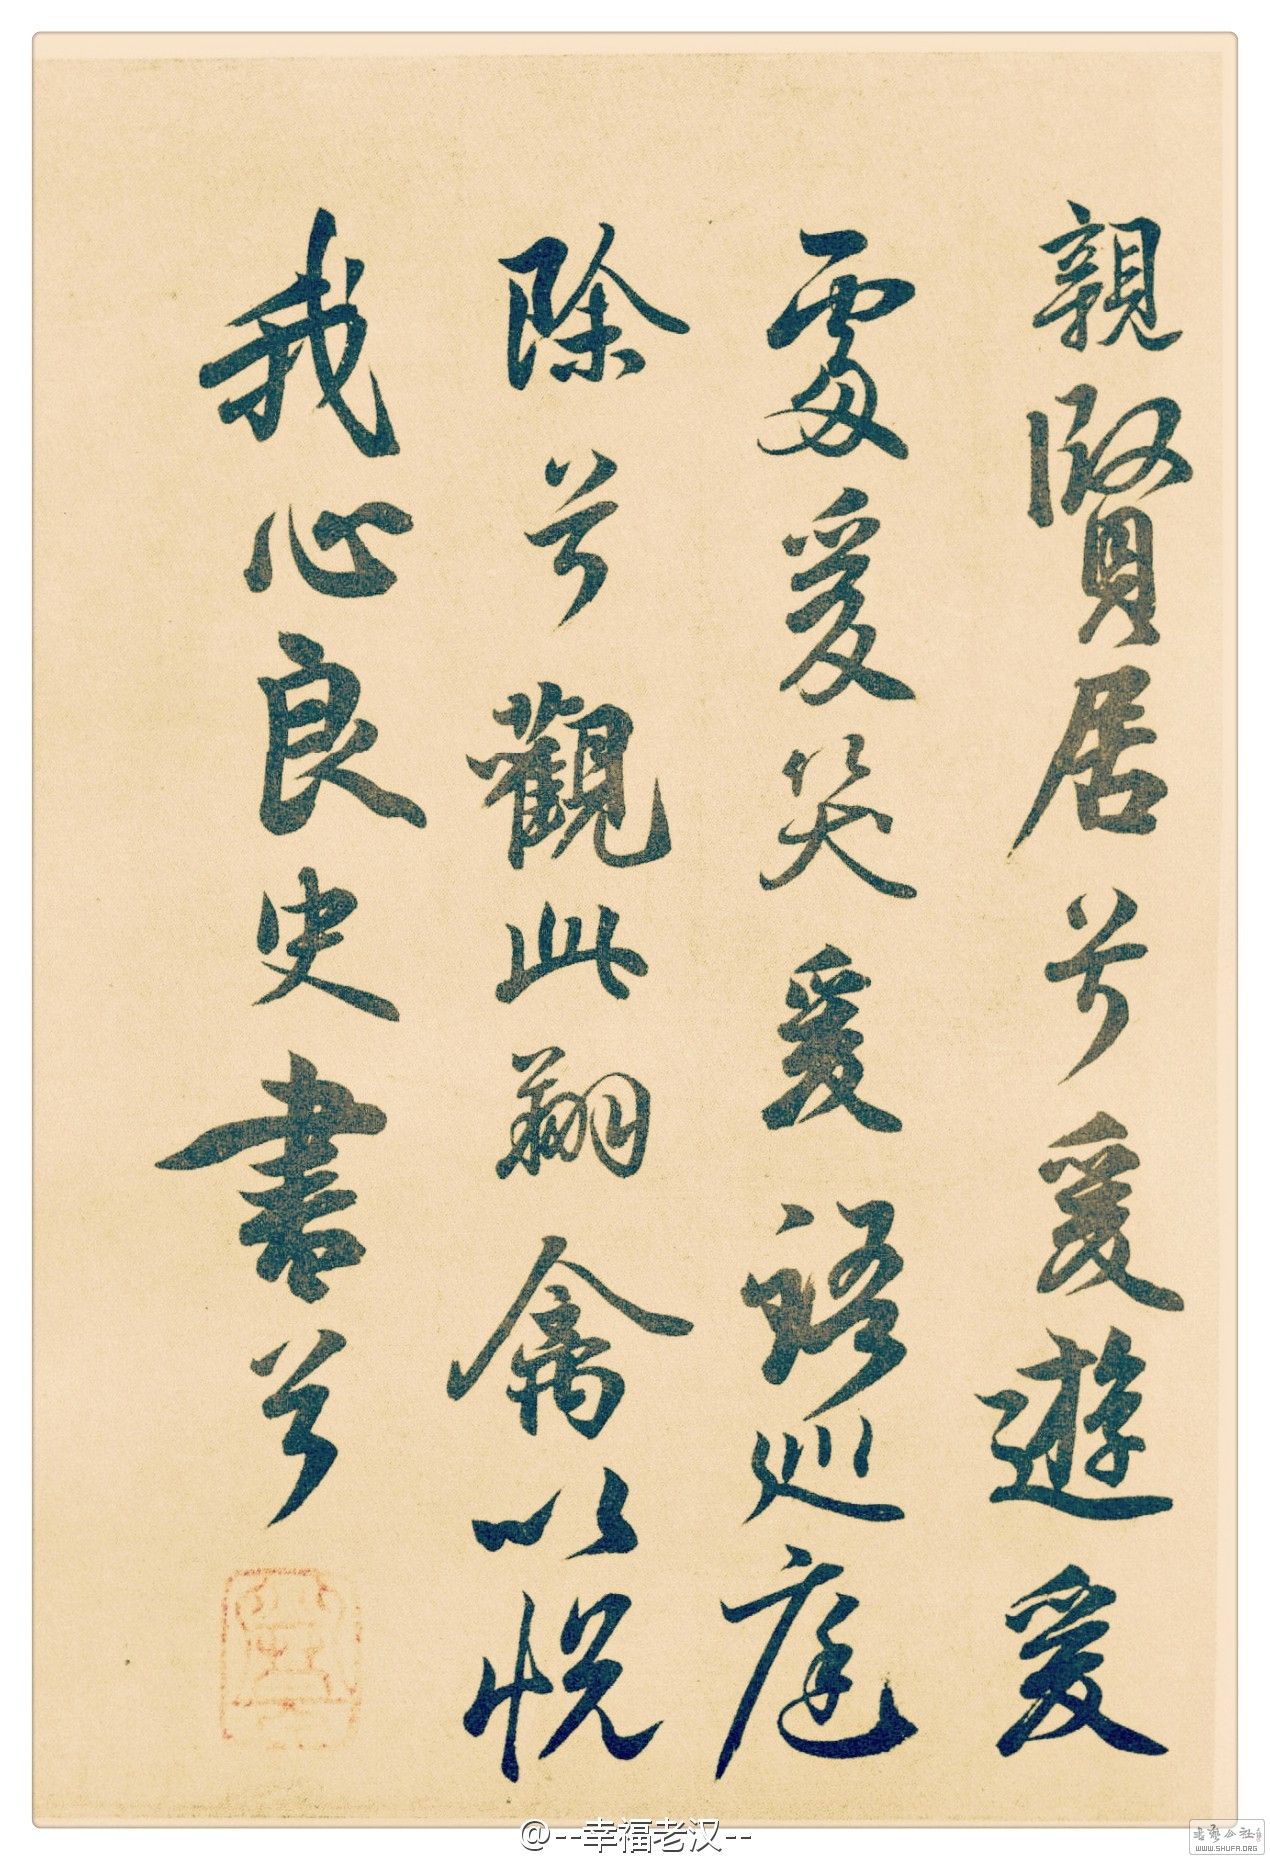 親賢居兮爰遊爰
處爰笑爰語巡庭
除兮觀此翔禽以悅
我心良史書兮
@--幸福老汉--
书艺公社
WWW.SHUFA.ORG